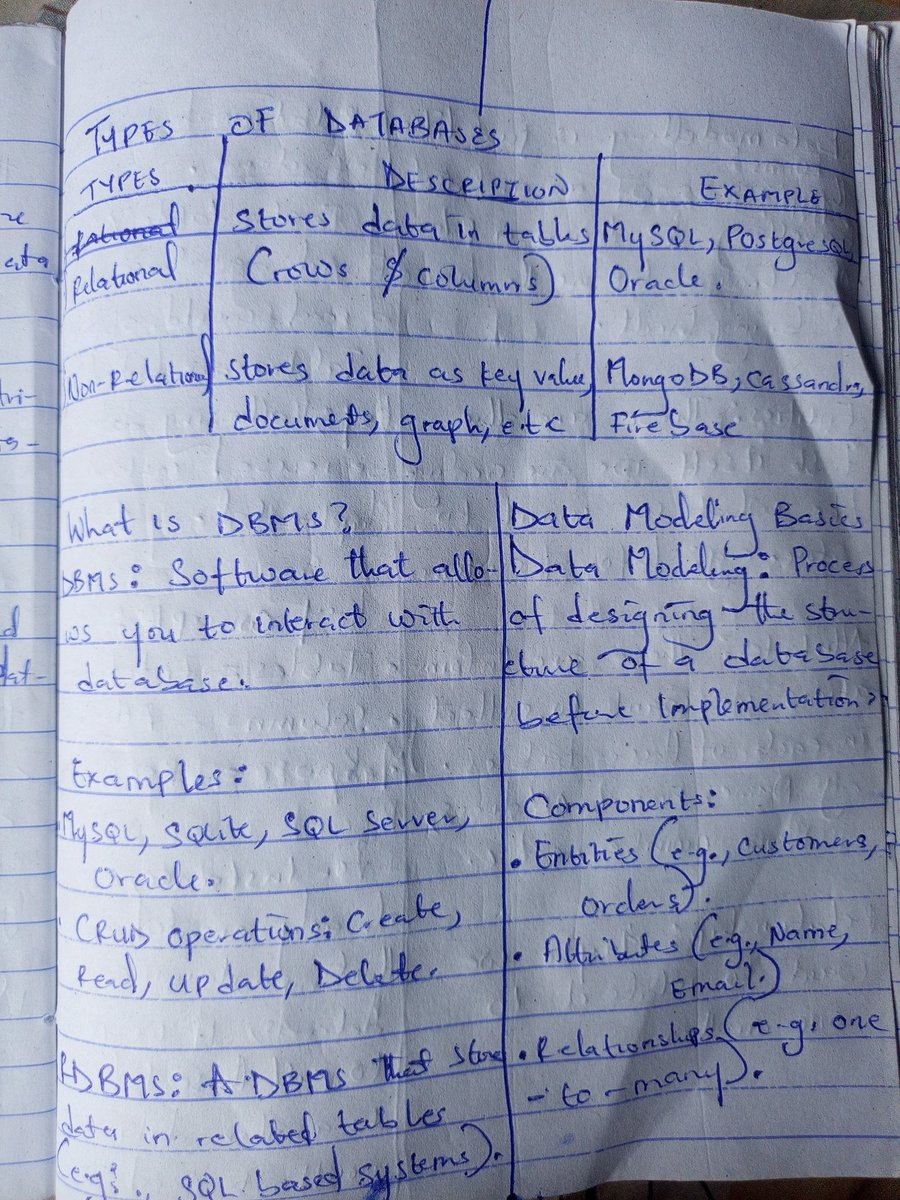 TYPES OF DATABASES
TYPES DESCRIPTION EXAMPLE
Relational
Stores data in tables
(rows & columns)
MySQL, PostgreSQL
Oracle.
Non-Relational
Stores data as key value,
documents, graph, etc
MongoDB, Cassandra,
FireBase
What is DBMS?
DBMS: Software that allo-
ws you to interact with
database.
Examples:
MySQL, SQLite, SQL Server,
Oracle.
CRUD operations: Create,
Read, Update, Delete.
RDBMS: A DBMS that store
data in related tables
(e.g., SQL based systems).
Data Modeling Basics
Data Modeling: Process
of designing the stru-
cture of a database
before implementation
Components:
• Entities (e.g., Customers,
Orders).
• Attributes (e.g., Name,
Email.)
• Relationships (e.g, one
-to-many).